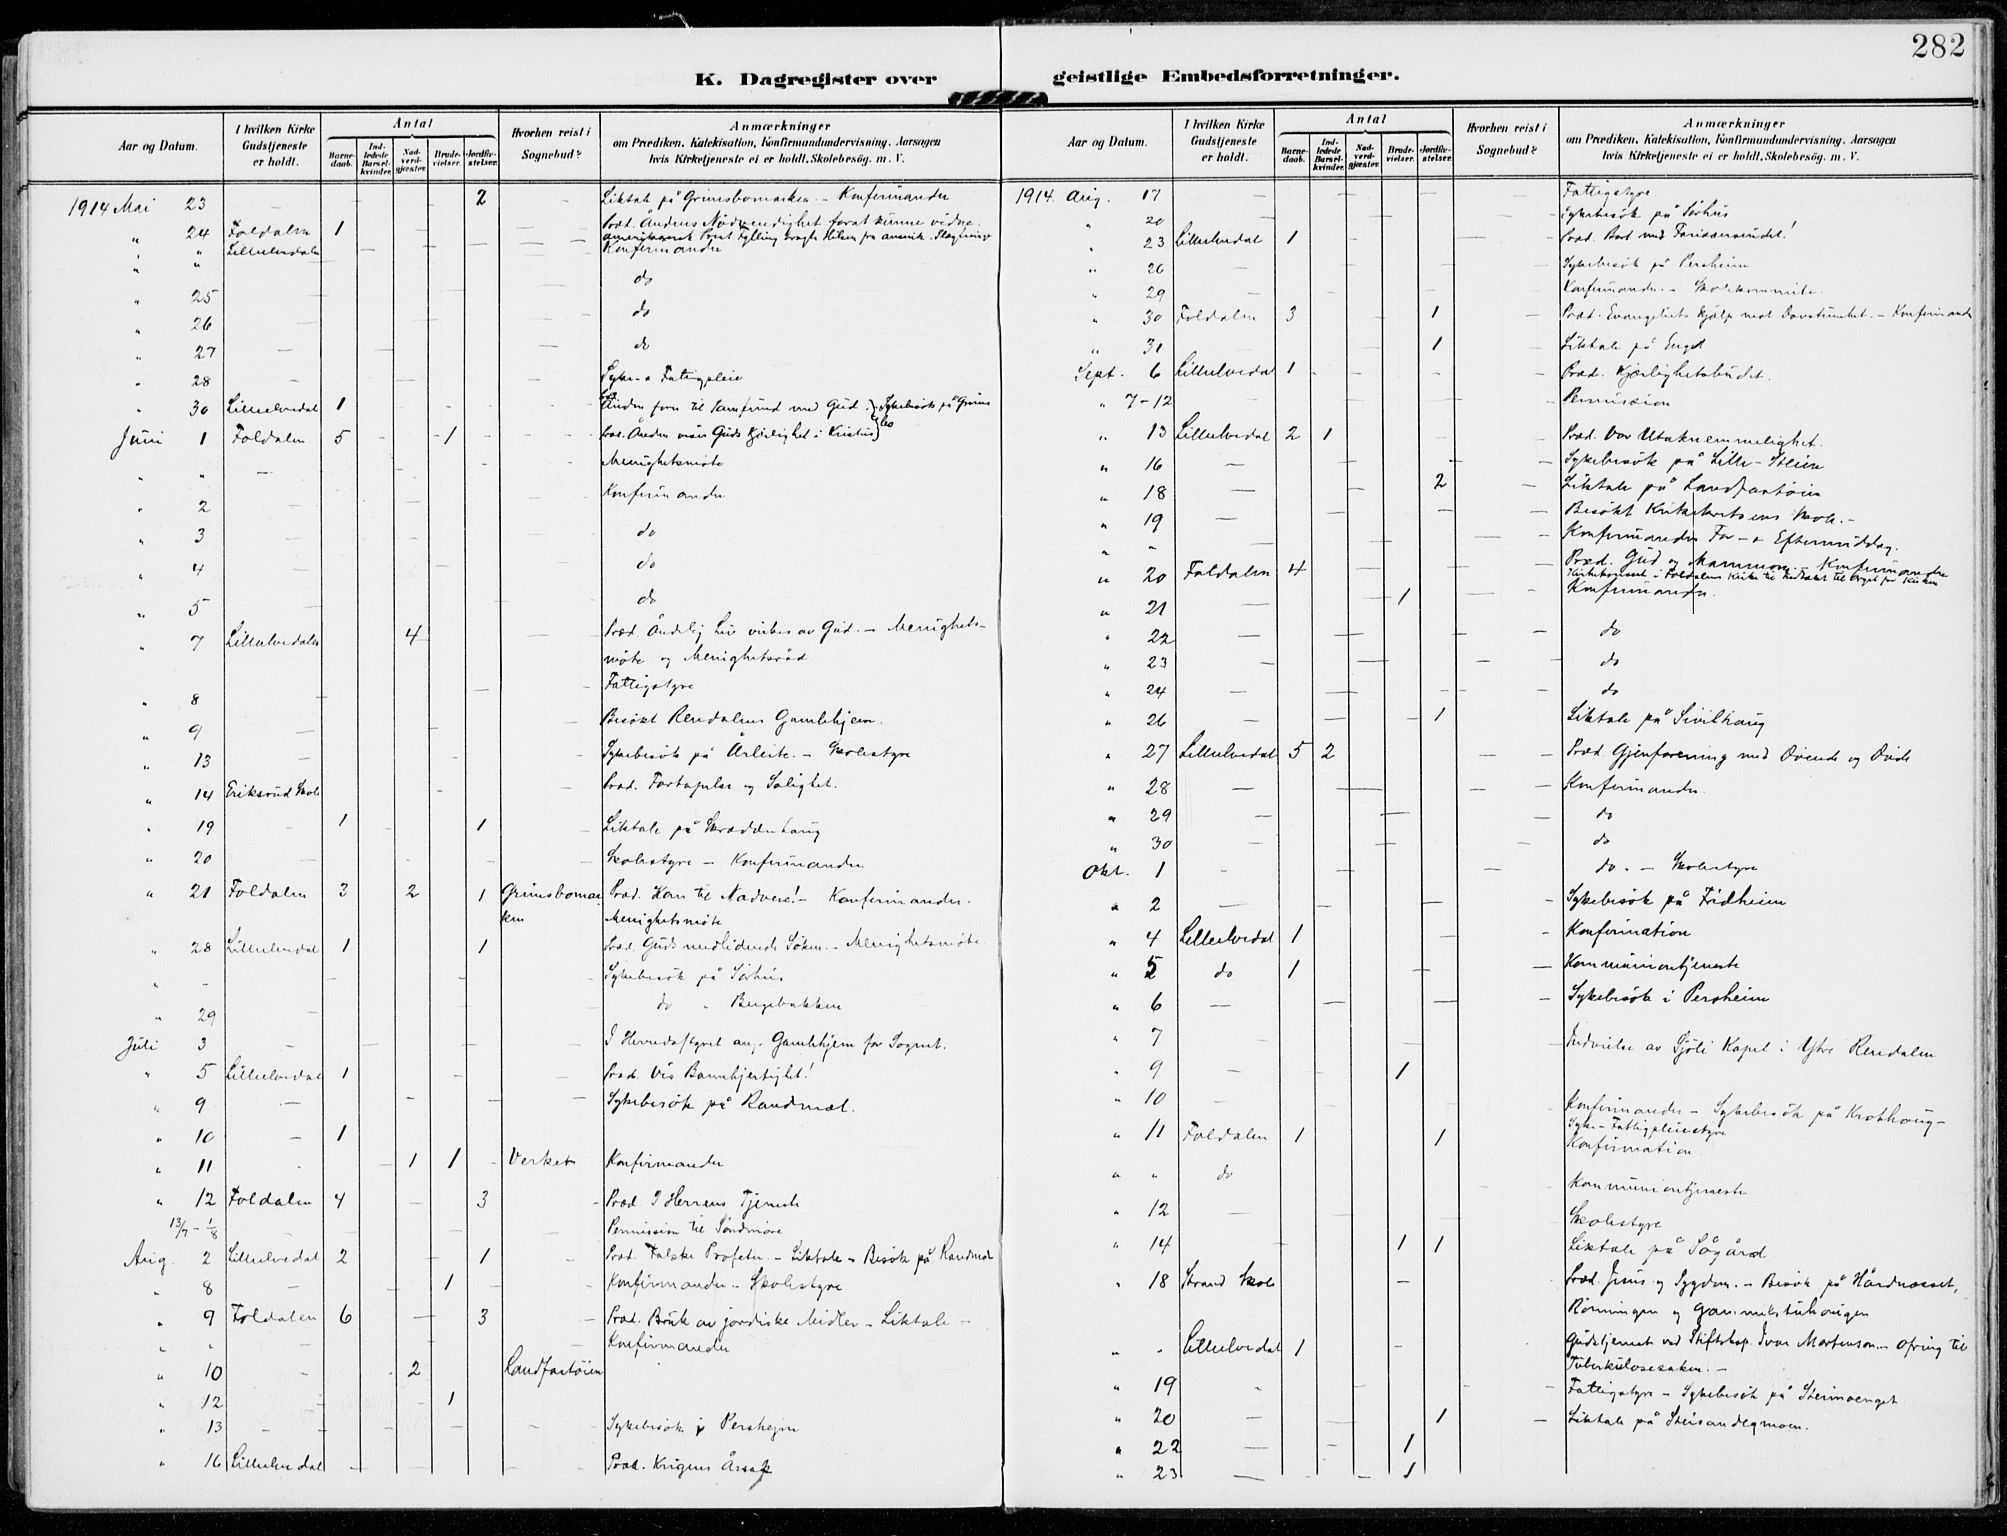 282
K. Dagregister over geistlige Embedsforretninger.
Aar og Datum. I hvilken Kirke Gudstjeneste er holdt. Antal Barnedaab. Indledede Barselkvinder. Nadverdgjæster. Brudevielser. Jordfæstelser. Hvorhen reist i Sognebud? Anmærkninger om Prædiken, Katekisation, Konfirmandundervisning, Aarsagen hvis Kirketjeneste ei er holdt. Skolebesøg. m. V.
1914 Mai 23 — 2 Liktale på Grimsbomarken – Konfirmander
" 24 Foldalen 1 Præd. Åndens Nødvendighet forat kunne vidne.
" " Lillelvedalen
Konfirmander
" " do
" 25 do
" 26 do
" 27 —
" 28 — Syke- o Fattigpleie
" 30 Lillelvedal 1 Ånden fører til Samfund med Gud. Sykebesök på Grimsbo
Juni 1 Foldalen 5 1 Præd. Ånden viser Guds Kjærlighet i Kristus
" " — Menighetsmöte
" 2 Konfirmander
" 3 do
" 4 do
" 5 do
" 7 Lillelvedalen 4 Præd. Åndelig Liv virkes av Gud. – Menighets-
möte og Menighetsråd
" 8 Fattigstyre
" 9 Besökt Rendalens Gamlehjem.
" 13 Sykebesök på Årleite. – Skolestyre
" 14 Eriksrud Skole Præd. Fortapelse og Salighet.
" 19 1 1 Liktale på
" 20 Skolestyre – Konfirmander
" 21 Foldalen 3 2 1 Grimsbomarken Præd. Kom til Nadvere! – Konfirmander.
Menighetsmöte
" 28 Lillelvedal 1 1 Præd. Guds medlidende Söken. – Menighetsmöte.
" – Sykebesök på Sörhus
" 29 do " Bergebakken
Juli 3 I Herredsstyret ang. Gamlehjem for Sognet.
" 5 Lillelvedal 1 Præd. Vis Barmhjertighet!
" 9 — Sykebesök på Randmæl.
" 10 – 1
" 11 1 1 Verket Konfirmander
" 12 Foldalen 4 3 Præd. I Herrens Tjeneste
13/7 – 1/8 Permission til Söndmöre
Aug. 2 Lillelvedal 2 1 Præd. Falske Profeter. – Liktale – Besök på Randmæl
" 8 — 1 Konfirmander – Skolestyre
" 9 Foldalen 6 3 Præd. Bruk av jordiske Midler – Liktale –
" " Konfirmander
" 10 2 Landfastöien
" 12 1
" 13 – Sykebesök på Persheim
" 16 Lillelvedal Præd. Krigens Årsak
Aar og Datum. I hvilken Kirke Gudstjeneste er holdt. Antal Barnedaab. Indledede Barselkvinder. Nadverdgjæster. Brudevielser. Jordfæstelser. Hvorhen reist i Sognebud? Anmærkninger om Prædiken, Katekisation, Konfirmandundervisning, Aarsagen hvis Kirketjeneste ei er holdt. Skolebesøg. m. V.
1914 Aug. 17 — Fattigstyre
" 20 — Sykebesök på Sörhus
" 23 Lillelvedal 1 Præd. Bort med Farisæersindet!
" 26 — Sykebesök på Persheim
" 29 — Konfirmander. – Skolekommite.
" 30 Foldalen 3 1 Præd. Evangeliets Hjælp mot Døvstumhet. – Konfirmander
" 31 1 Liktale på Enget
Sept. 6 Lillelvedal 1 Præd. Kjærlighetsbudet.
" 7–12 Permission
" 13 Lillelvedal 2 1 Præd. Vor Utaknemmelighet.
" 16 — Sykebesök på Lille-Steien
" 18 — 2 Liktale på Landfastöien
" 19 — Besökt Krikekretsens Skole.–
" – Konfirmander For- o Eftermiddag.
" 20 Foldalen 4 Præd. Gud og Mammon. – Konfirmander
Kirkekonsert i Foldalens Kirke til Indtækt til Orgel for Kirken
" 21 — 1 Konfirmander.
" 22 — do
" 23 – do
" 24 — do
" 26 – 1 Liktale på Sivilhaug
" 27 Lillelvedal 5 2 Præd. Gjenforening med Döende og Döde
" 28 — Konfirmander
" 29 — do
" 30 do
Okt. 1 do. – Skolestyre
" 2 — Sykebesök på Fridheim
" 4 Lillelvedal 1 Konfirmation
" 5 do 1 Kommuniontjeneste
" 6 — Sykebesök i Persheim
" 7 — Indvielse av Sjöli Kapel i Ytre Rendalen
" 9 — 1
" 10 — Konfirmander – Sykebesök på Krokhaug –
Syke- Fattigpleiestyre
" 11 Foldalen 1 1 Konfirmation
" " do Kommuniontjeneste
" 12 — Skolestyre
" 14 1 1 Liktale på Sögård
" 18 Strand Skole Præd. Jesus og Sygdom. – Besök på Hårdnæsset,
Rönningen og
" " Lillelvedal 1 Gudstjeneste ved Stiftskap. Ivar Mortensson – Ofring til
Tuberkulosesaken. –
" 19 Fattigstyre – Sykebesök på Steimoenget
" 20 — 1 Liktale på
" 22 — 1
" 23 — 1